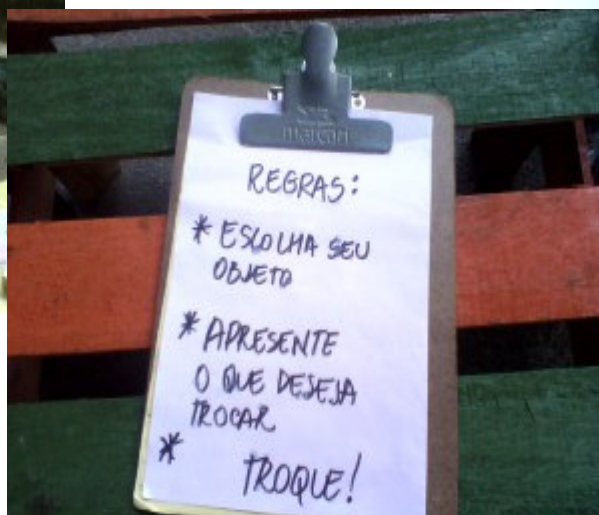 marcari
REGRAS:
* ESCOLHA SEU
OBJETO
* APRESENTE
O QUE DESEJA
TROCAR
* TROQUE!